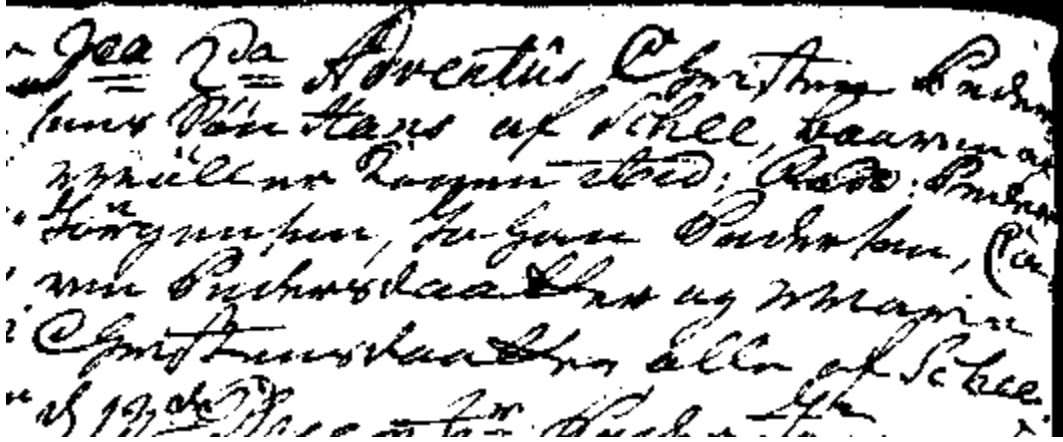 Fca 2da Adventûs Christen Peder
sens Søn Hans af Schee, baaren af
Møller Kogen sted: Fadd: Peder
Jörgensen, Johan Pedersen, Ca
ren Pedersdaatter og Maria
Christensdaatter alle af Schee
d 12te